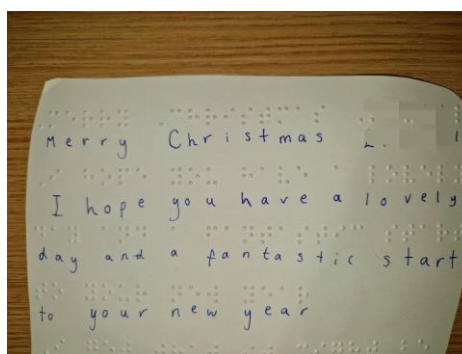 Merry Christmas
I hope you have a lovely
day and a fantastic start
to your new year